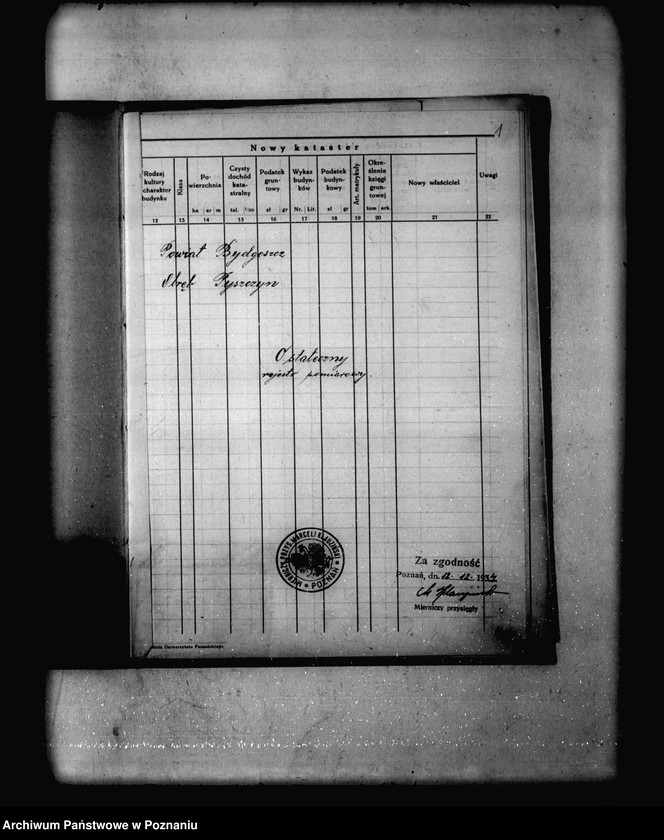 1
Nowy kataster
Rodzaj kultury charakter budynku
Klasa
Powierzchnia
ha ar m
Czysty dochód katastralny
tal.
Podatek gruntowy
zł gr
Wykaz budynków
Nr. Lit.
Podatek budynkowy
zł gr
Art. matrykuły
Określenie księgi gruntowej
tom ark.
Nowy właściciel
Uwagi
12 13 14 15 16 17 18 19 20 21 22
Powiat Bydgoszcz
Obręb Pyszczyn
Ostateczny
rejestr pomiarowy.
MIERNICZY PRZYS. MARCELI
POZNAŃ
Za zgodność
Poznań, dn. 12. 12. 1934
Mierniczy przysięgły
Uniwersytetu Poznańskiego
Archiwum Państwowe w Poznaniu